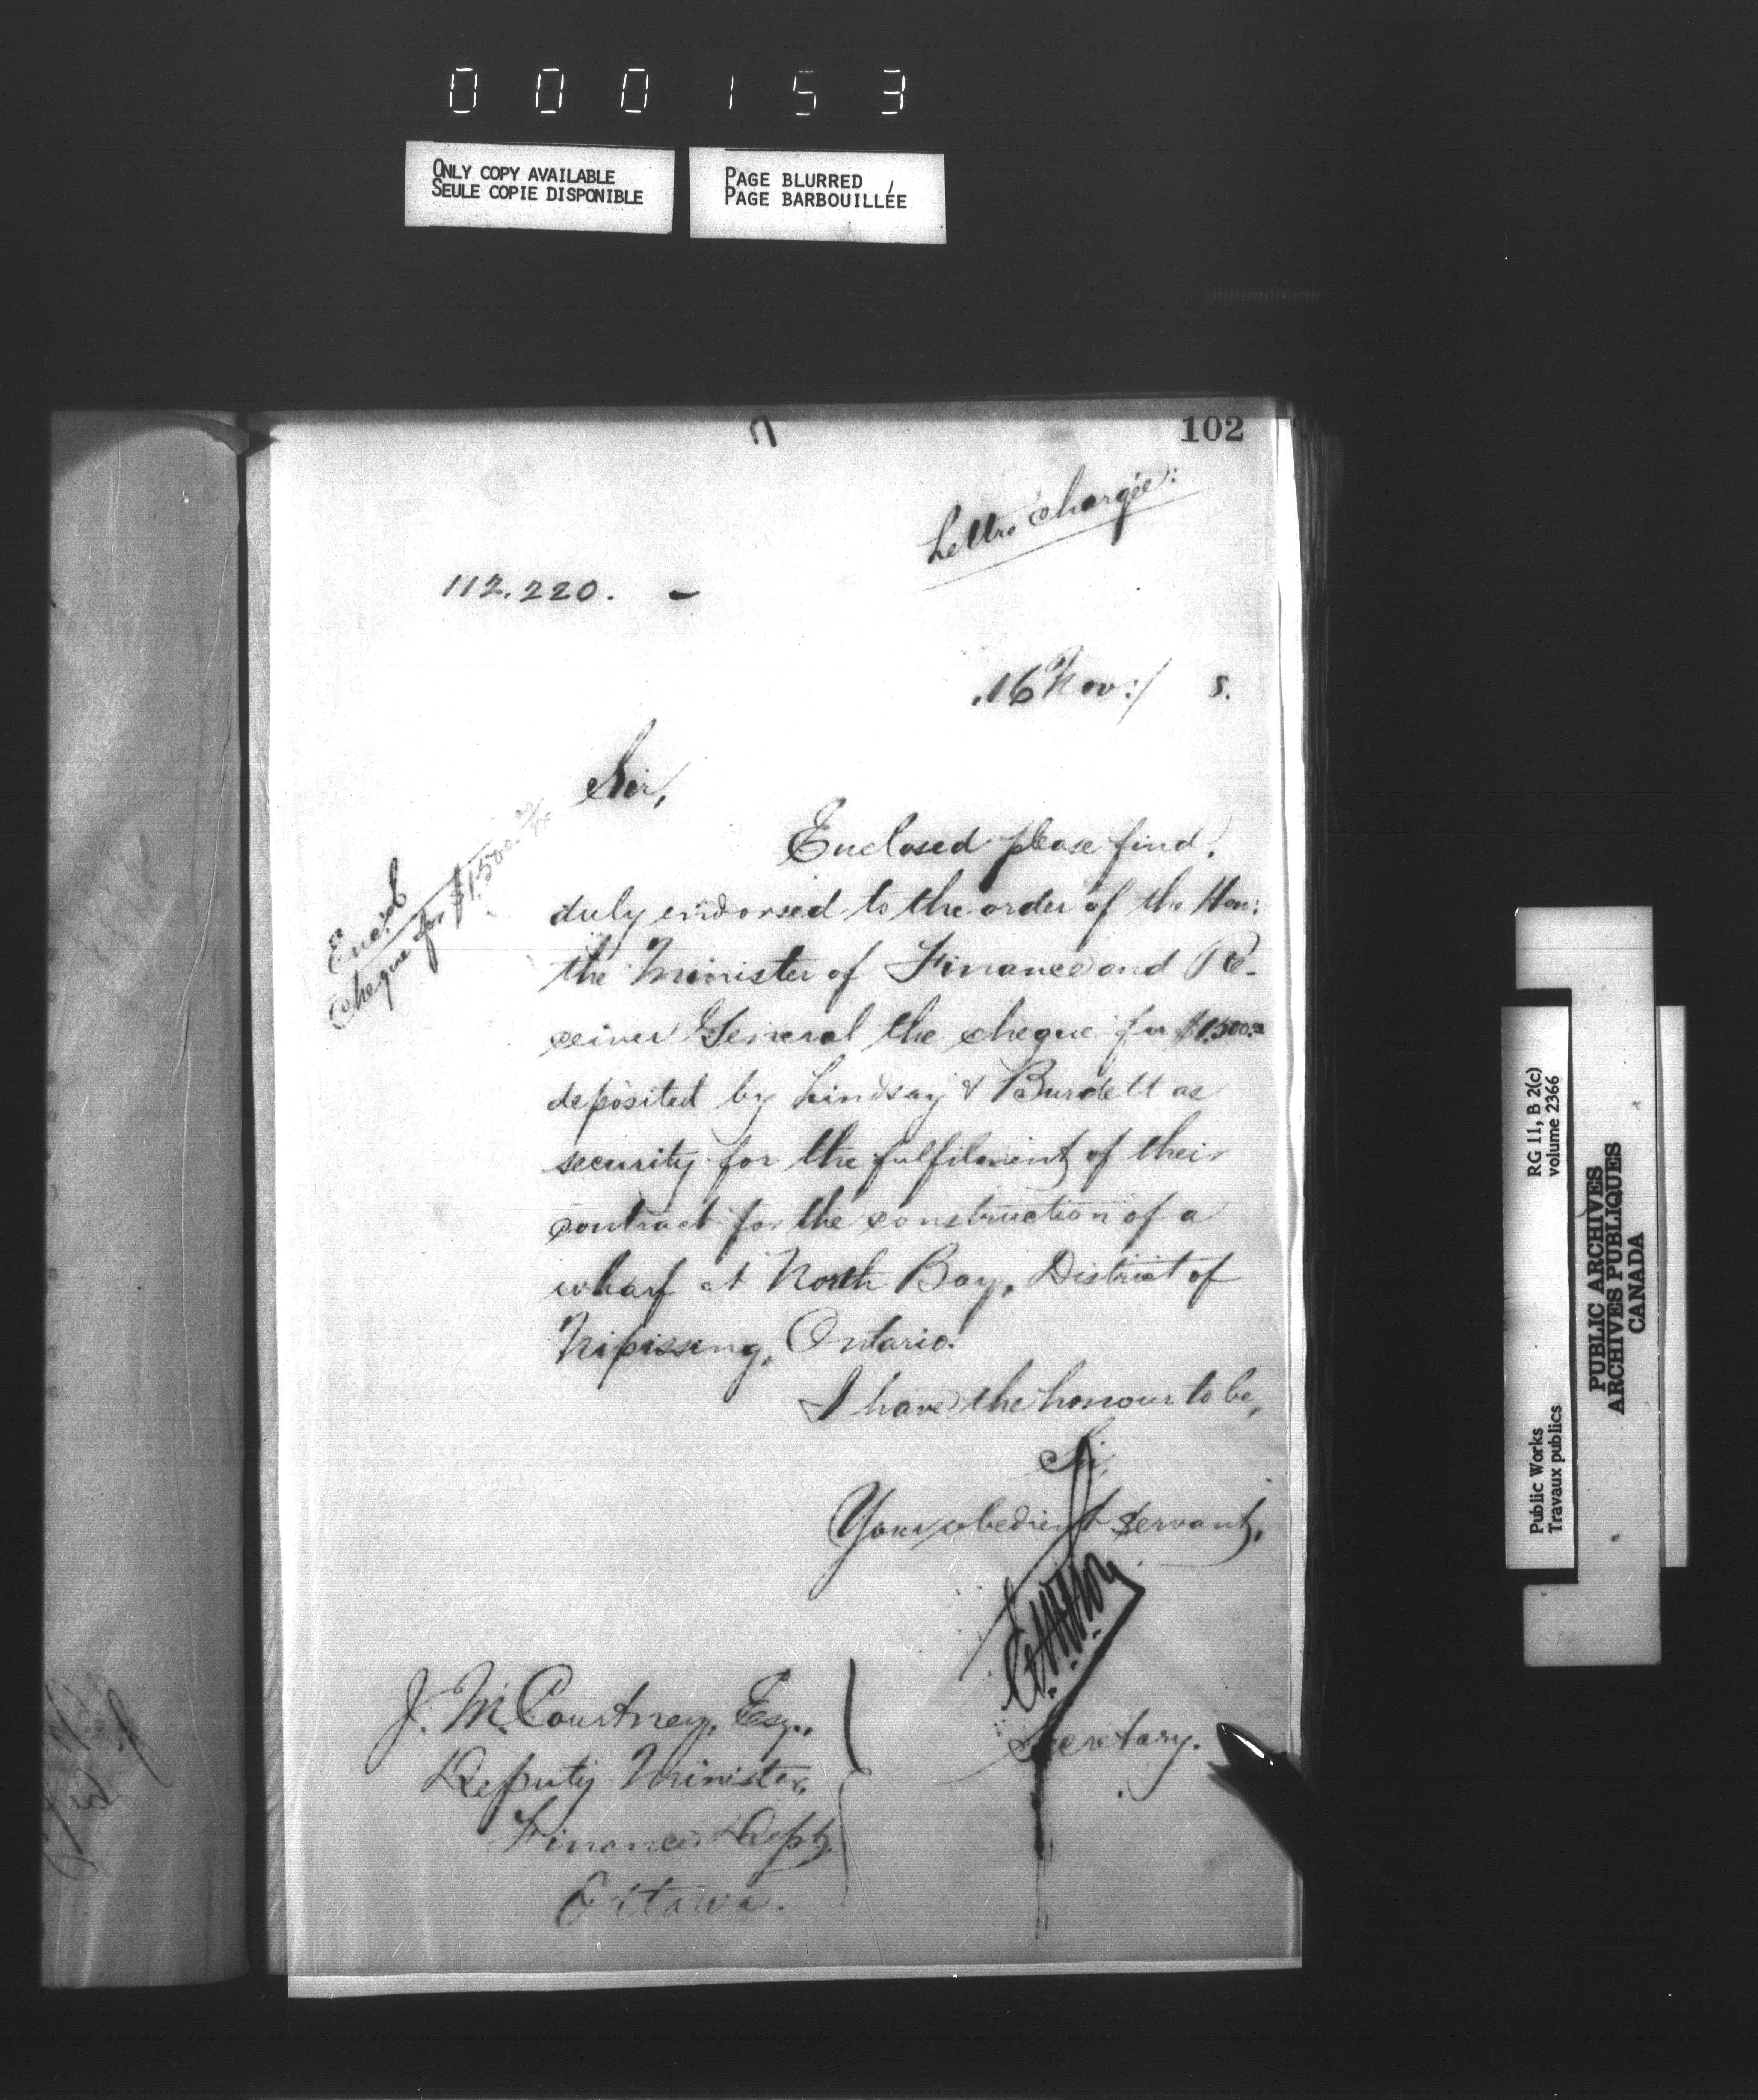 000153
ONLY COPY AVAILABLE
SEULE COPIE DISPONIBLE
PAGE BLURRED
PAGE BARBOUILLÉE
102
Lettre chargée:
112.220. -
16 Nov:/ 8.
Sir,
Encl:
Cheque for $1,500.
Enclosed please find,
duly endorsed to the order of the Hon:
the Minister of Finance and Re-
ceiver General the cheque for $1,500.
deposited by Lindsay & Burdett as
security for the fulfilment of their
contract for the construction of a
wharf at North Bay, District of
Nipissing, Ontario.
I have the honour to be,
Sir,
Your obedient servant,
Secretary.
J. M. Courtney, Esq.,
Deputy Minister,
Finance Dept,
Ottawa.
RG 11, B 2(c)
volume 2366
PUBLIC ARCHIVES
ARCHIVES PUBLIQUES
CANADA
Public Works
Travaux publics